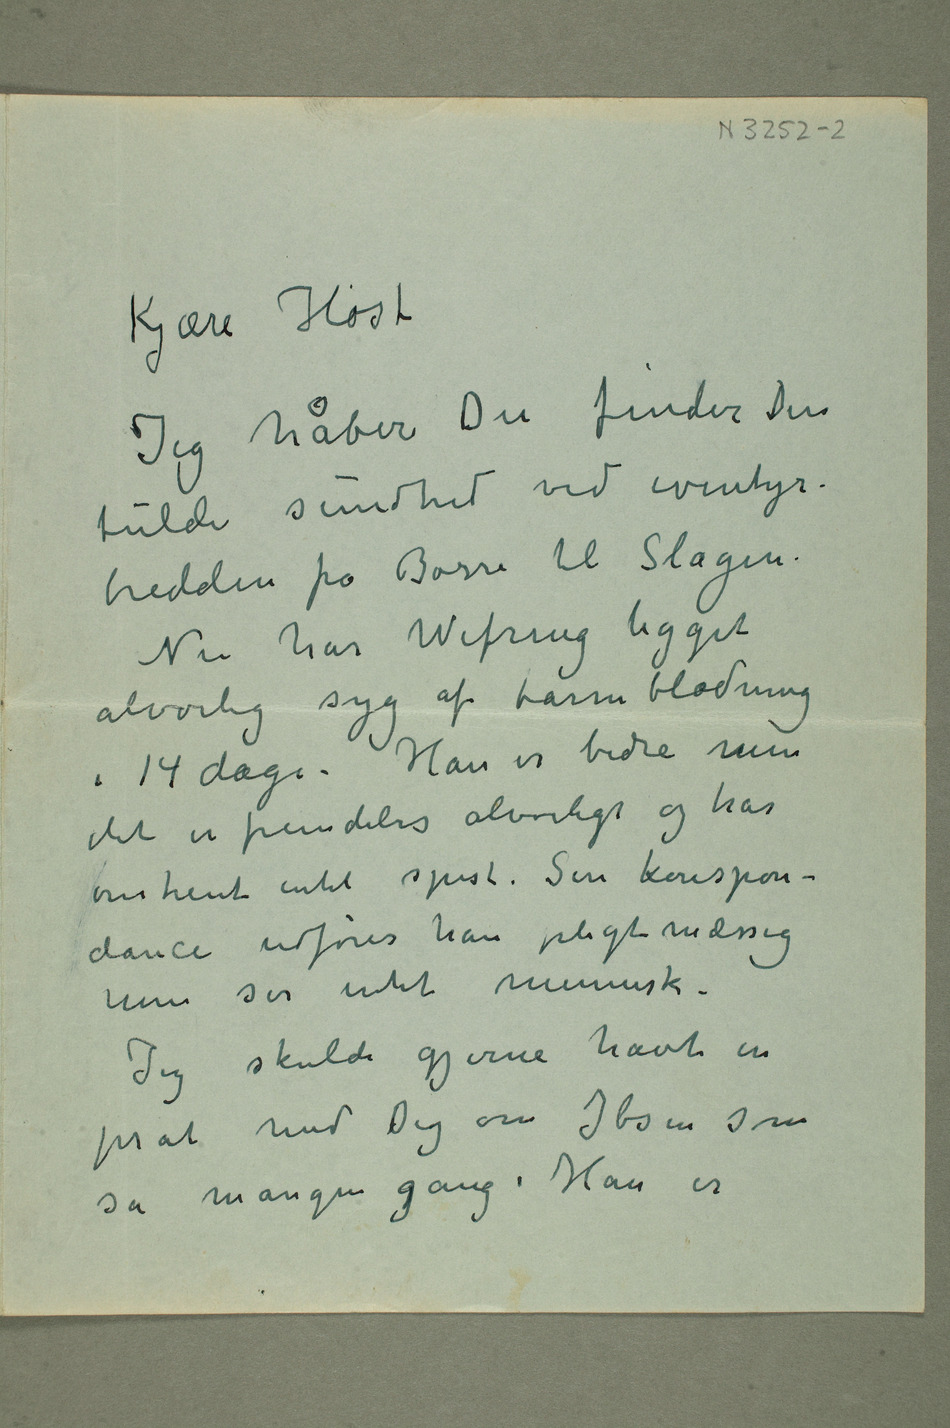 N 3252-2
Kjære Høst
Jeg håber Du finder Din
fulde sundhed ved eventyr-
bredden fra Borre til Slagen.
Nu har Wefring ligget
alvorlig syg af tarmblødning
i 14 dage. Han er bedre men
det er fremdeles alvorligt og har
omtrent intet spist. Sin korrespon-
dance udfører han pligtmæssig
men ser intet mennesk.
Jeg skulde gjerne havt en
prat med Dig om Ibsen som
så mangen gang. Han er